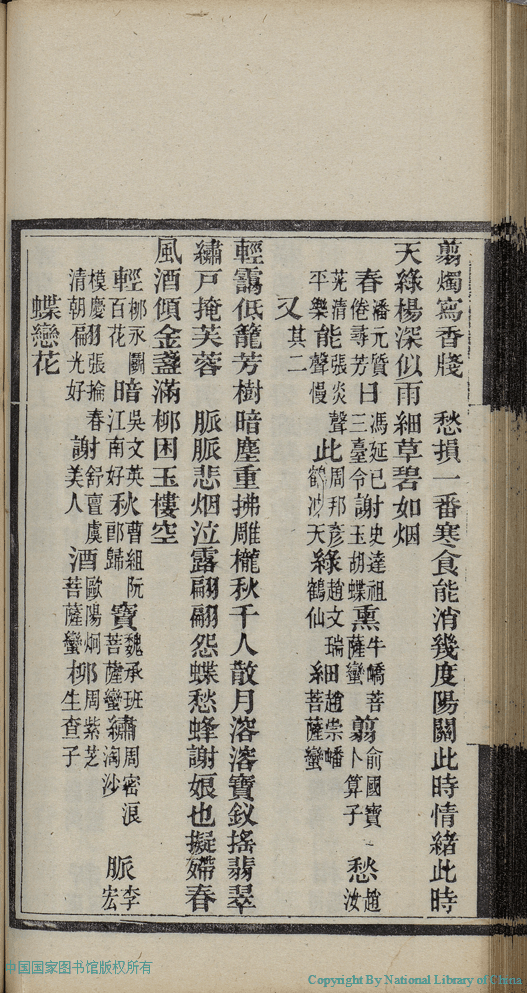 翦燭寫香牋　愁損一番寒食能消幾度陽關此時情緒此時
天綠楊深似雨細草碧如烟
春潘元質倦尋芳日馮延巳三臺令謝史達祖玉胡蝶熏牛嶠菩薩蠻翦俞國寶卜算子愁趙汝
茪清平樂能張炎聲聲慢此周邦彥鶴沖天綠趙文瑞鶴仙細趙崇嶓菩薩蠻
又其二
輕靄低籠芳樹暗塵重拂雕櫳秋千人散月溶溶寶釵搖翡翠
繡戶掩芙蓉　脈脈悲烟泣露翩翩怨蝶愁蜂謝娘也擬殢春
風酒傾金盞滿柳困玉樓空
輕柳永鬭百花暗吳文英江南好秋曹組阮郎歸寶魏承班菩薩蠻繡周密浪淘沙脈李宏
模慶清朝翩張掄朝光好春謝舒亶虞美人酒歐陽炯菩薩蠻柳周紫芝生查子
蝶戀花
中国国家图书馆版权所有
Copyright By National Library of China